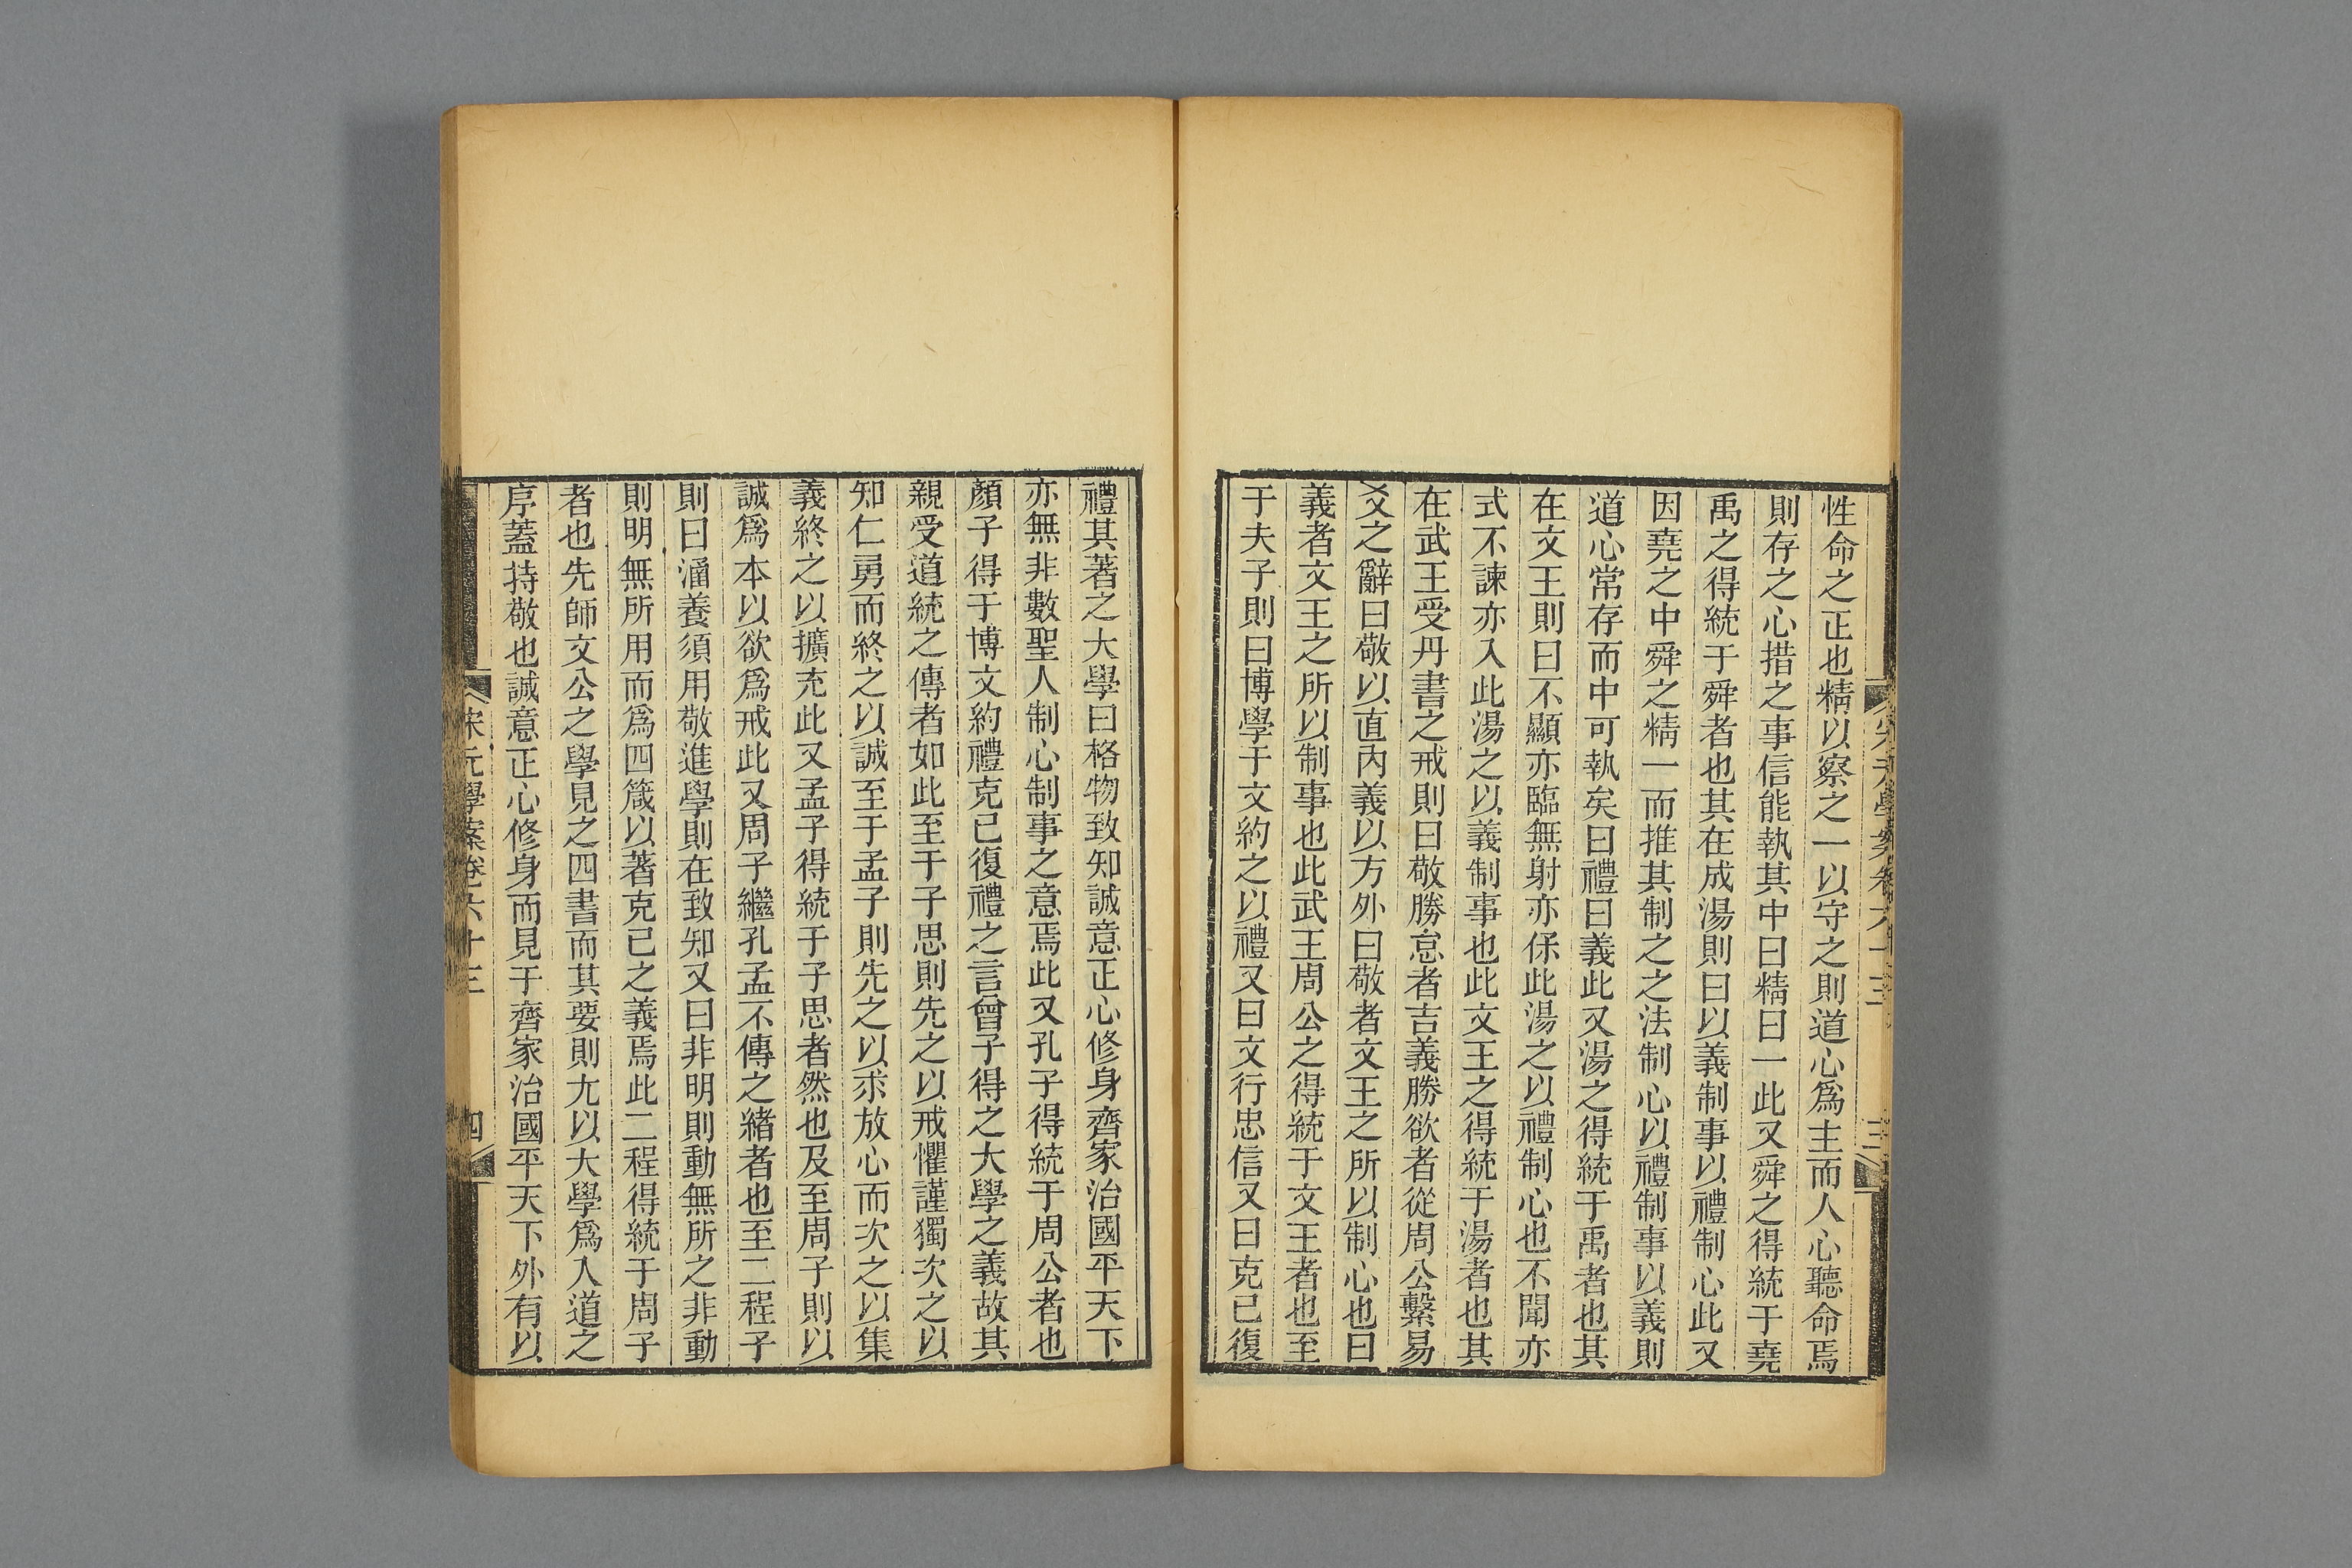 宋元學案卷六十三
三
性命之正也精以察之一以守之則道心爲主而人心聽命焉
則存之心措之事信能執其中曰精曰一此又舜之得統于堯
禹之得統于舜者也其在成湯則曰以義制事以禮制心此又
因堯之中舜之精一而推其制之之法制心以禮制事以義則
道心常存而中可執矣曰禮曰義此又湯之得統于禹者也其
在文王則曰不顯亦臨無射亦保此湯之以禮制心也不聞亦
式不諫亦入此湯之以義制事也此文王之得統于湯者也其
在武王受丹書之戒則曰敬勝怠者吉義勝欲者從周公繫易
爻之辭曰敬以直內義以方外曰敬者文王之所以制心也曰
義者文王之所以制事也此武王周公之得統于文王者也至
于夫子則曰博學于文約之以禮又曰文行忠信又曰克已復
禮其著之大學曰格物致知誠意正心修身齊家治國平天下
亦無非數聖人制心制事之意焉此又孔子得統于周公者也
顏子得于博文約禮克已復禮之言曾子得之大學之義故其
親受道統之傳者如此至于子思則先之以戒懼謹獨次之以
知仁勇而終之以誠至于孟子則先之以求放心而次之以集
義終之以擴充此又孟子得統于子思者然也及至周子則以
誠爲本以欲爲戒此又周子繼孔孟不傳之緒者也至二程子
則曰涵養須用敬進學則在致知又曰非明則動無所之非動
則明無所用而爲四箴以著克已之義焉此二程得統于周子
者也先師文公之學見之四書而其要則尢以大學爲入道之
序蓋持敬也誠意正心修身而見于齊家治國平天下外有以
宋元學案卷六十三
四